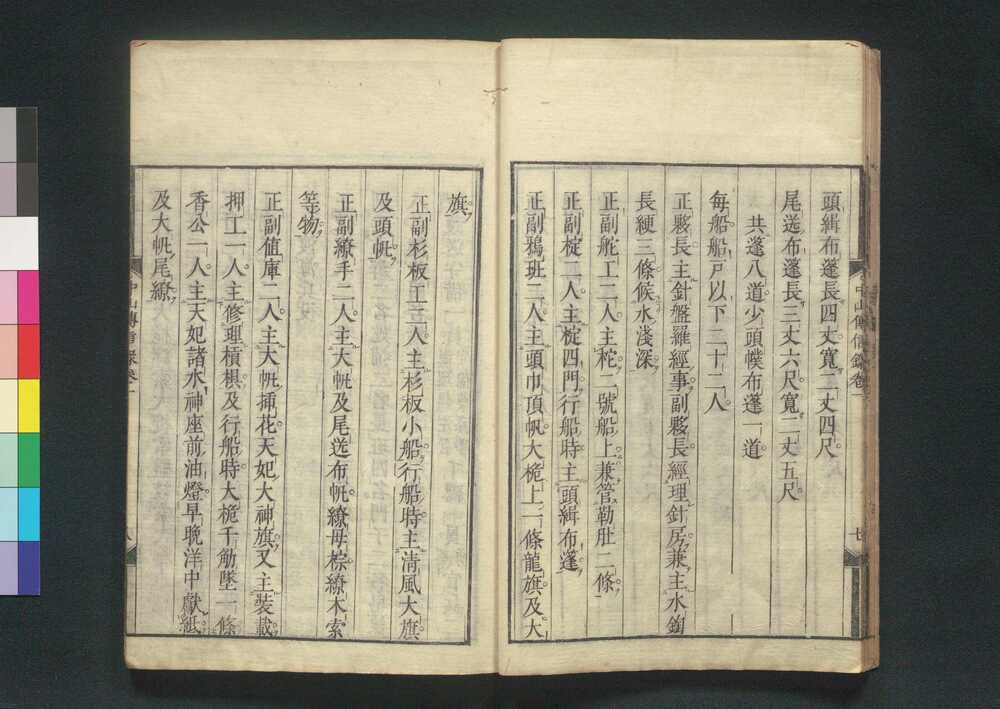 頭緝布蓬長四丈寬二丈四尺
尾送布蓬長三丈六尺寬二丈五尺
共蓬八道少頭幞布蓬一道
每船船戶以下二十二人
正夥長主針盤羅經事副夥長經理針房兼主水鉤
長綆三條候水淺深
正副舵工二人主柁二號船上兼管勒肚二條
正副椗二人主椗四門行船時主頭緝布蓬
正副鴉班二人主頭巾頂帆大桅上一條龍旗及大
中山傳信錄卷一
七
旗
正副杉板工二人主杉板小船行船時主清風大旗
及頭帆
正副繚手二人主大帆及尾送布帆繚母棕繚木索
等物
正副值庫二人主大帆揷花天妃大神旗又主裝載
押工一人主修理槓椇及行船時大桅千觔墜一條
香公一人主天妃諸水神座前油燈早晚洋中獻紙
及大帆尾繚
中山傳信錄卷一
八